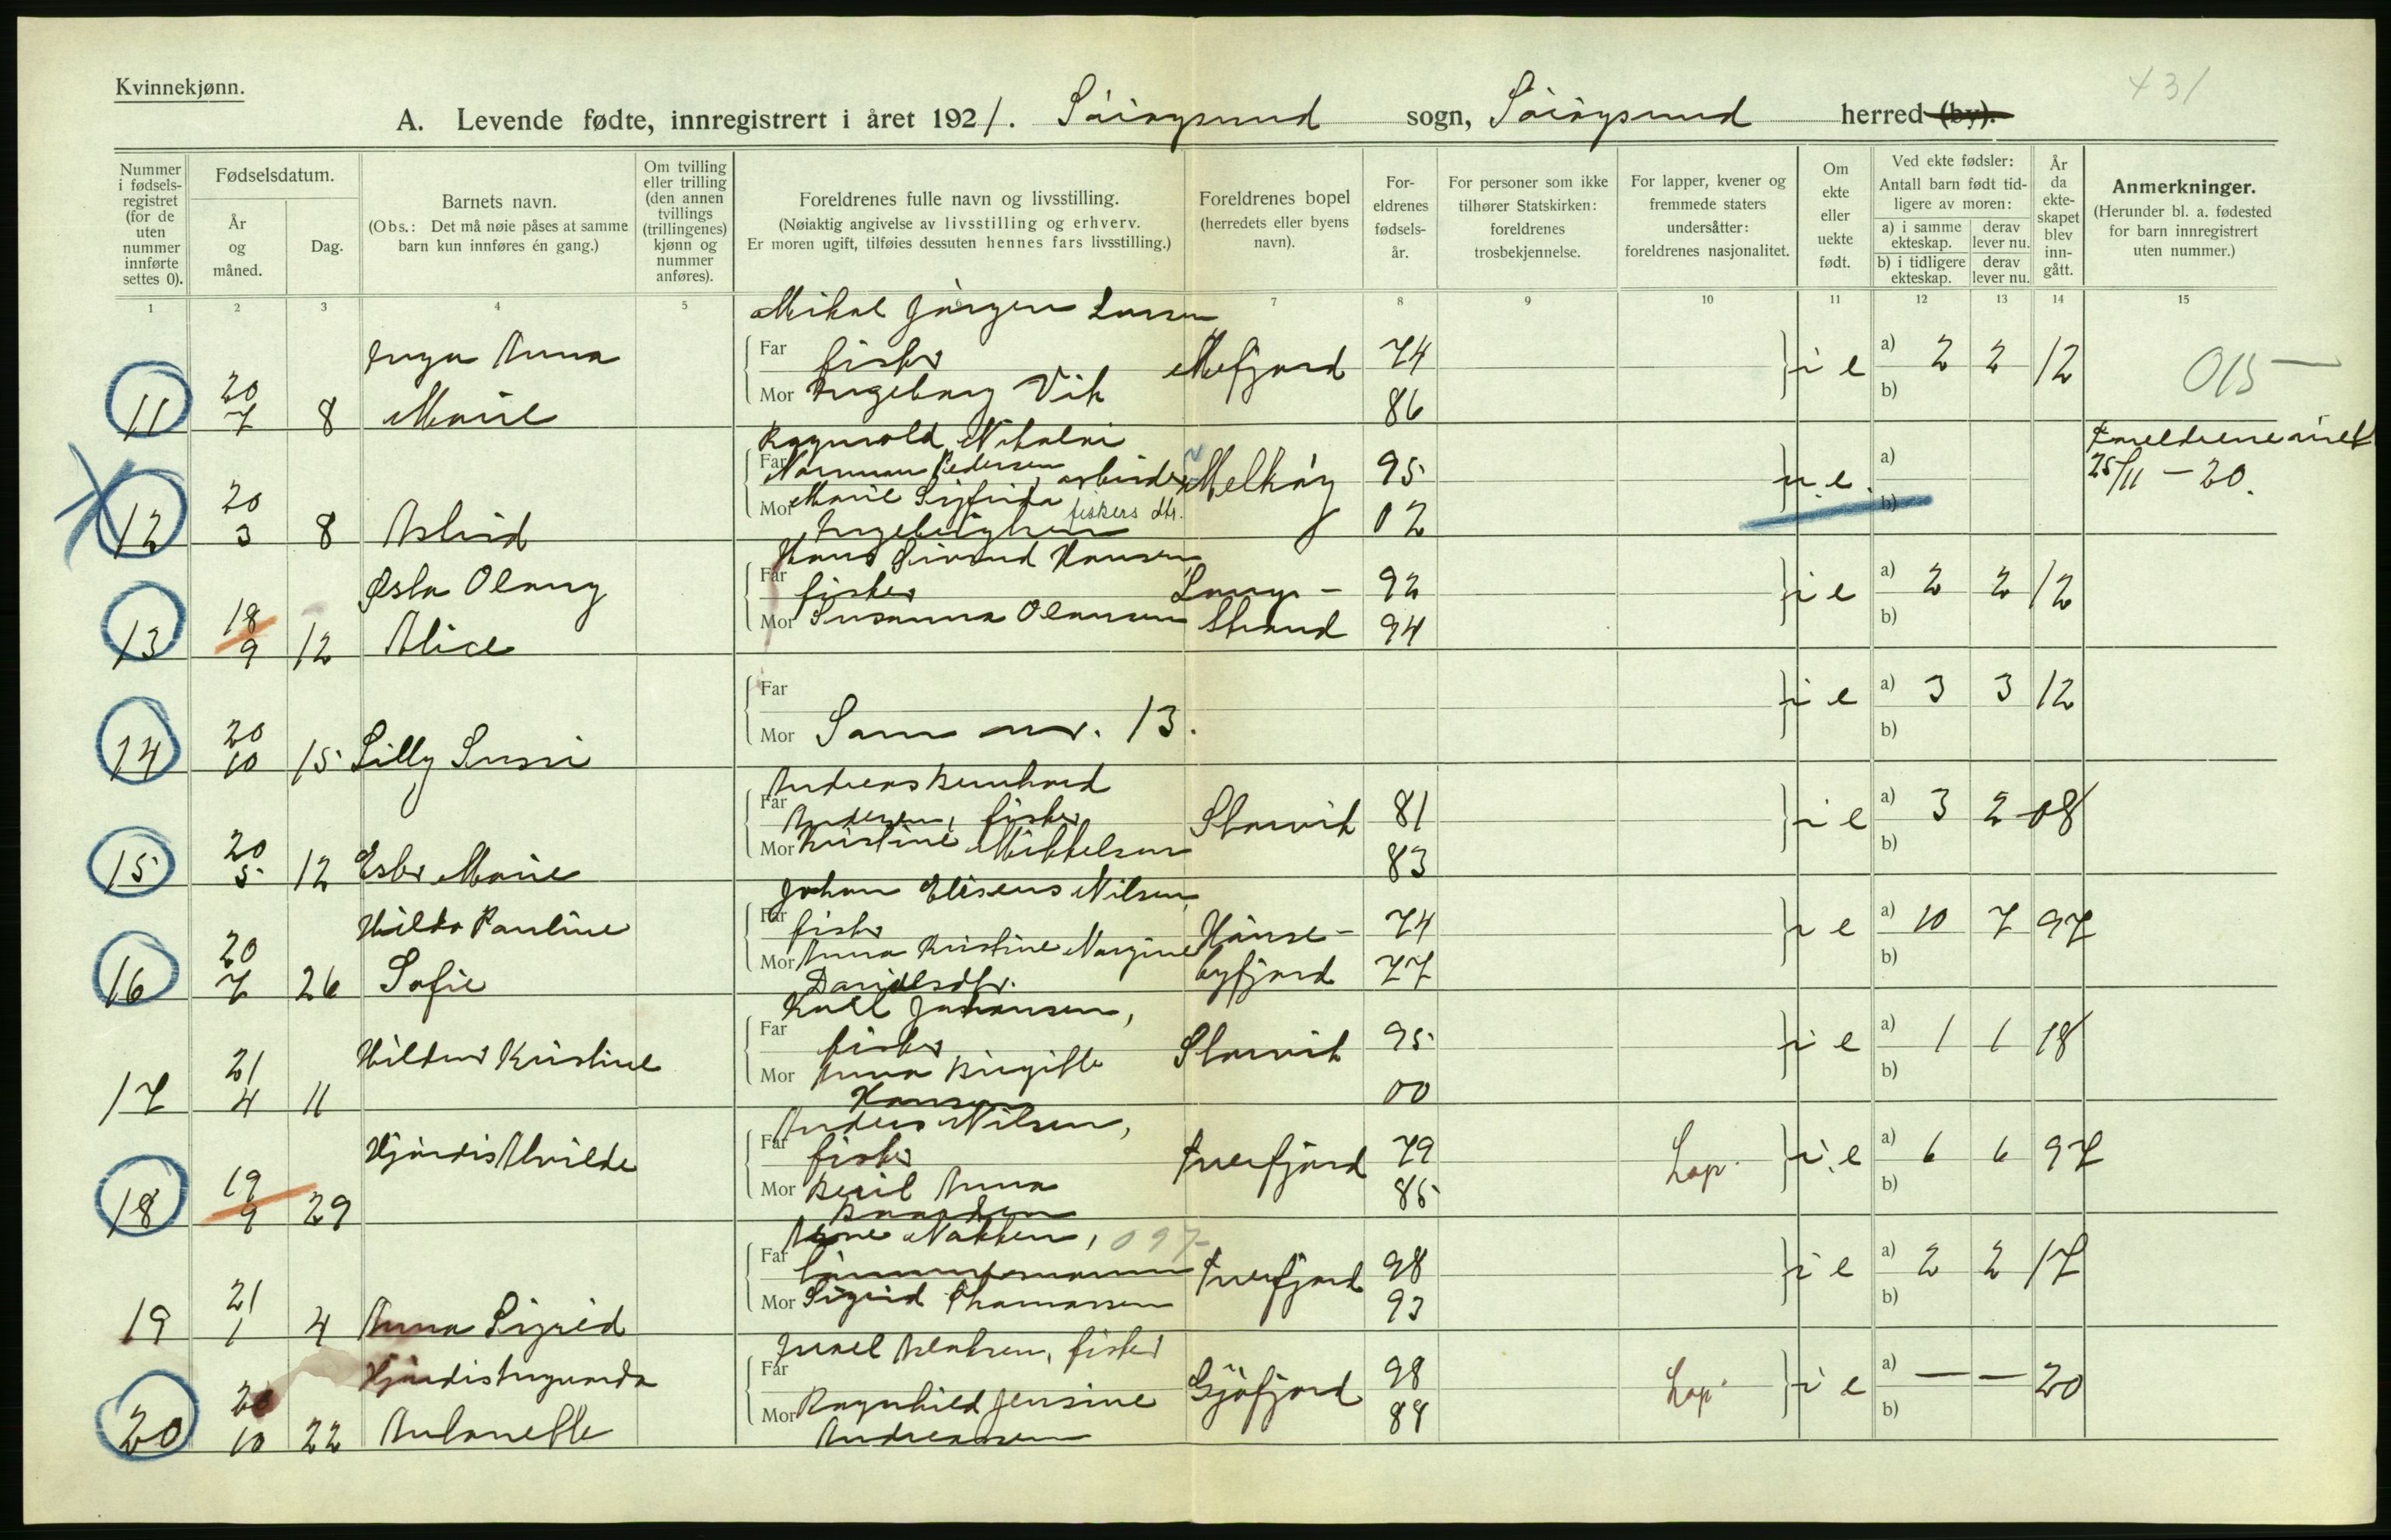 Kvinnekjønn.
431
A. Levende fødte, innregistrert i året 1921. Sørøysund sogn, Sørøysund herred (by).
Nummer i fødselsregistret (for de uten nummer innførte settes 0).
Fødselsdatum.
År og måned.
Dag.
Barnets navn.
(Obs.: Det må nøie påses at samme barn kun innføres én gang.)
Om tvilling eller trilling (den annen tvillings (trillingenes) kjønn og nummer anføres).
Foreldrenes fulle navn og livsstilling.
(Nøiaktig angivelse av livsstilling og erhverv.
Er moren ugift, tilføies dessuten hennes fars livsstilling.)
Foreldrenes bopel
(herredets eller byens navn).
Foreldrenes fødselsår.
For personer som ikke tilhører Statskirken: foreldrenes trosbekjennelse.
For lapper, kvener og fremmede staters undersåtter: foreldrenes nasjonalitet.
Om ekte eller uekte født.
Ved ekte fødsler: Antall barn født tidligere av moren:
a) i samme ekteskap.
derav lever nu.
b) i tidligere ekteskap.
derav lever nu.
År da ekteskapet blev inngått.
Anmerkninger.
(Herunder bl. a. fødested for barn innregistrert uten nummer.)
1 2 3 4 5 7 8 9 10 11 12 13 14 15
Mikal Jørgen Larsen
Inga Anna Far fisker Mefjord 74 e a) 2 2 12 015
20 Mor Ingeborg Vik 86 b)
11 7 8 Marie
Ragnvald Nikolai Foreldrene viet
Far Norman Pedersen, arbeider Melkøy 95 u e. a) 25/11 - 20.
20 Mor Marie Sigfrida fiskers dtr. 02 b)
12 3 8 Astrid Ingebrigtsen
Hans Sivund Hansen,
Asla Olaug Far fisker Langstrand 92 e a) 2 2 12
18 Mor Susanna Olausen 94 b)
13 9 12 Alice
Far e a) 3 3 12
20 Mor Sam nr. 13. b)
14 10 15 Lilly Sussi
Andreas Bernhard
Far Andersen, fisker Storvik 81 e a) 3 2 08
20 Mor Kristine Mikkelsen 83 b)
15 5 12 Ester Marie
Johan Eliseus Nilsen,
Hilda Pauline Far fisker Hønsebyfjord 74 e a) 10 7 97
20 Mor Anna Kristine Nargine 77 b)
16 7 26 Sofie Danielsdtr.
Karl Johansen,
Hildur Kristine Far fisker Storvik 95 e a) 1 1 18
21 Mor Anna Birgitte 00 b)
17 4 11 Hansen
Anders Nilsen,
Hjørdis Alvilde Far fisker Tverfjord 79 Lap. e a) 6 6 97
19 Mor Beril Anna 85 b)
18 9 29
Arne Nakken, 097
Far tømmermann Tverfjord 98 e a) 2 2 17
21 Mor Sigrid Thomassen 93 b)
19 1 4 Anna Sigrid
Israel Aslaksen, fisker
Hjørdis Ingvarda Far Gjøfjord 98 Lap. e a) — — 20
20 Mor Ragnhild Jensine 89 b)
20 10 22 Antonette Andreassen